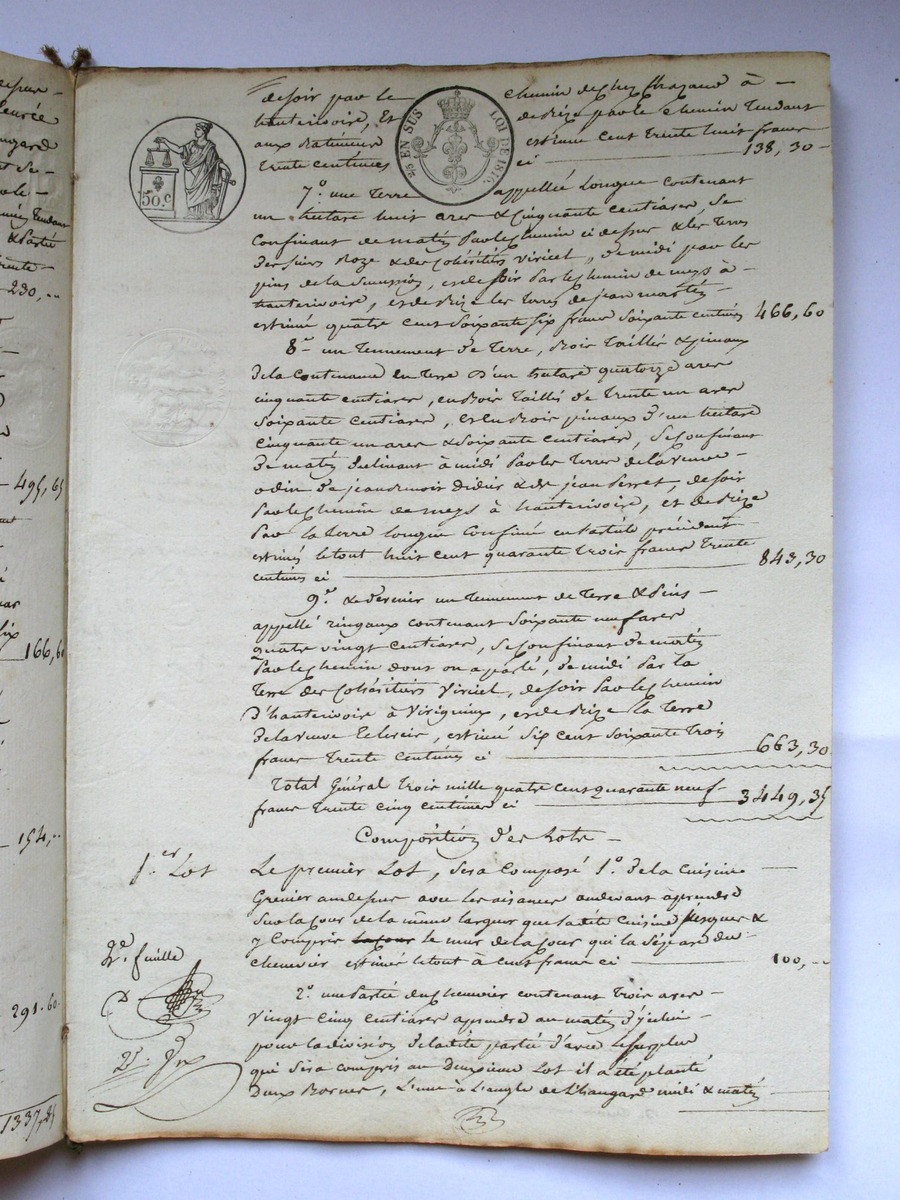 de soir par le chemin de chez Chazaud à
hauterivoire, Et de bize par le chemin Tendant
aux Ratimier estimée cent Trente huit francs
trente centimes ci 138,30
50c
45 EN SUS LOI DE 1816
7° une Terre appellée Longue contenant
un hectare huit ares & cinquante centiares, Se
Confinant de matin Par le chemin ci dessus & les Terres
des sieurs Roze & des cohéritiers Viricel, de midi par les
pins de la Succession, et de soir Par le chemin de meys à
hauterivoire, et de bize les Terres de jean martin
estimé quatre cent Soixante Six francs Soixante centimes 466,60
8° un Tennement de Terre, Bois Taillis & pinaux
de la Contenance en Terre D'un hectare quatorze ares
cinquante centiares, en bois Taillis de Trente un ares
Soixante Centiares, et en Bois pinaux d'un hectare
Cinquante un ares & Soixante Centiares, Se Confinant
de matin déclinant à midi Par les Terres de la veuve
odin de jean benoit didier & de jean Perret, de soir
Par le chemin de meys à hauterivoire, et de Bize
Par la Terre longue Confiné en l'article précédent
estimés le tout huit cent quarante Trois francs Trente
centimes ci 843,30
9° & dernier un Tennement de Terre & Pins
appellé ringaux contenant Soixante neuf ares
quatre vingt Centiares, Se Confinant de matin
Par le chemin dont on a parlé, de midi Par la
Terre des Cohéritiers Viricel, de soir Par le chemin
d'hauterivoire à Virigneux, et de Bize la Terre
de la veuve , estimé Six cent Soixante Trois
francs Trente Centimes ci 663,30
Total Général Trois mille quatre Cent quarante neuf
francs Trente Cinq Centimes ci 3449,35
Composition des Lots
1.er Lot Le premier Lot, Sera Composé 1° de la Cuisine
Grenier au dessus avec les aisances au devant à prendre
Sur la Cour de la même largeur que la dite Cuisine jusques &
y Compris la Cour le mur de la Cour qui la Sépare du
chenevier estimée le tout à Cent francs ci 100,..
2e. fuille
2° une Partie du chenevier contenant Trois ares
Vingt Cinq Centiares à prendre au matin d'icelui
pour la division de la dite partie d'avec le surplus
qui Sera compris au Deuxième Lot il a été planté
Deux Bornes, L'une à L'angle de L'hangard midi & matin
230,..
495,65
166,60
154,..
291.60
1337,85